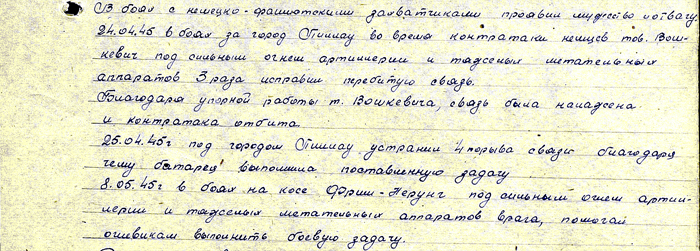 В боях с немецко-фашистскими захватчиками проявил мужество и отвагу
24.04.45 в боях за город Пиллау во время контратаки немцев тов. Вош-
кевич под сильным огнем артиллерии и тяжелых метательных
аппаратов 3 раза исправил перебитую связь.
Благодаря упорной работы т. Вошкевича, связь была налажена
и контратака отбита.
25.04.45г под городом Пиллау устранил 4 порыва связи благодаря
чему батарея выполнила поставленную задачу
8.05.45г в боях на косе Фриш-Нерунг под сильным огнем артил-
лерии и тяжелых метательных аппаратов врага, помогал
огневикам выполнить боевую задачу.